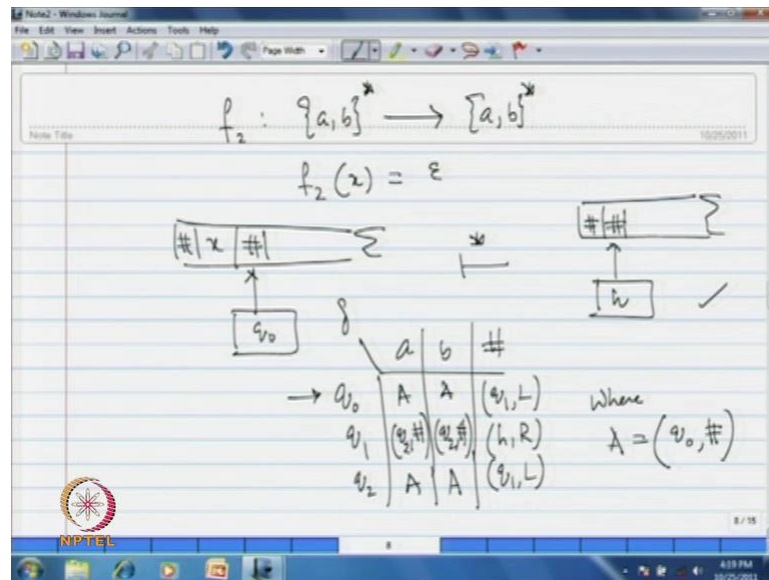 Note2 - Windows Journal
File Edit View Insert Actions Tools Help
Page Width
f₂ : {a, b}* → {a, b}*
Note Title
10/25/2011
f₂(x) = ε
# | x | # |
⊢*
# | # |
q₀
h ✓
δ a b #
→ q₀ A A (q₁, L) Where
q₁ (q₂, #) (q₂, #) (h, R) A = (q₀, #)
q₂ A A (q₁, L)
NPTEL
8 / 15
8
4:19 PM
10/25/2011